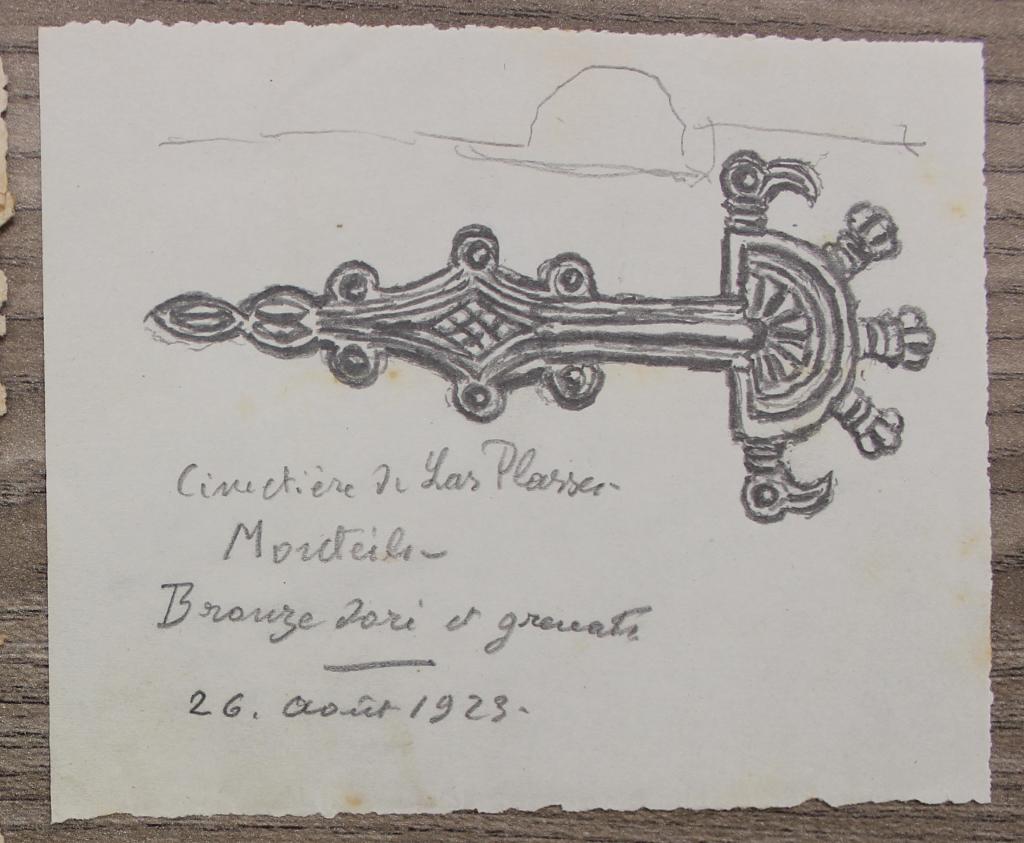 Cimetière de Las Plasses
Monteils
Bronze doré et grenats
26. Août 1923.